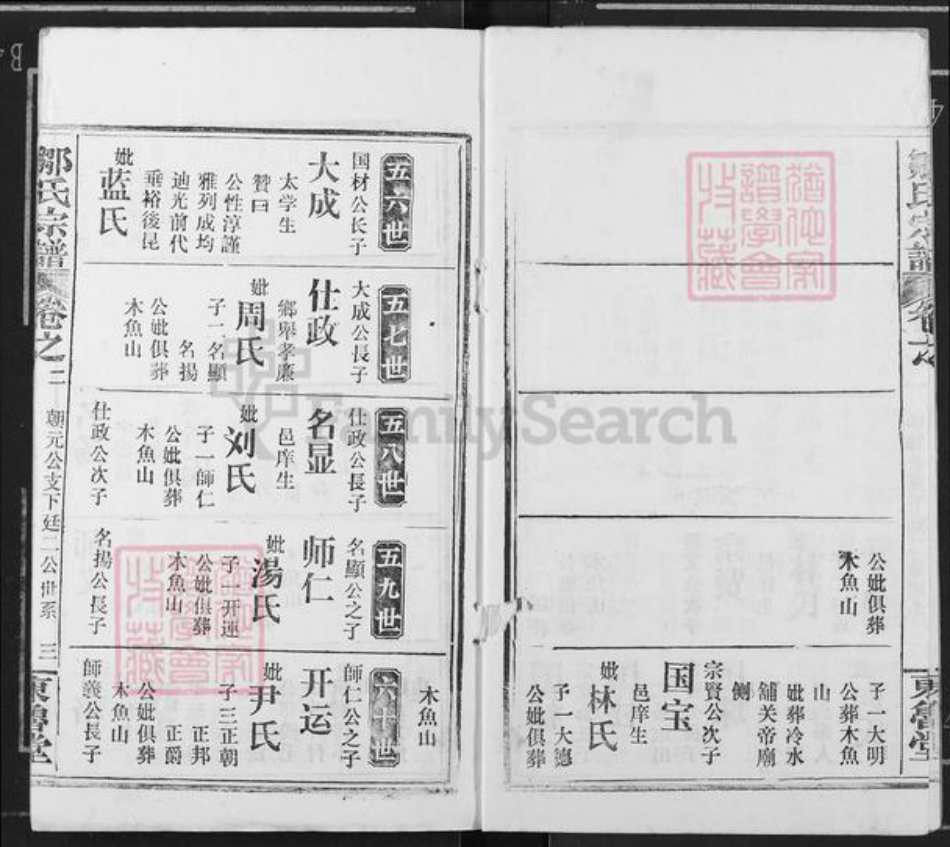 鄒氏宗譜
卷之
東魯堂
公妣俱葬
木魚山
子一大明
公葬木魚
山
妣葬冷水
舖关帝廟
側
宗賢公次子
国宝
邑庠生
妣林氏
子一大德
公妣俱葬
木魚山
五六世
国材公长子
大成
太学生
赞曰
公性淳謹
雅列成均
迪光前代
垂裕後昆
妣蓝氏
五七世
大成公長子
仕政
鄉舉孝廉
妣周氏
子一名顯
名揚
公妣俱葬
木魚山
五八世
仕政公長子
名显
邑庠生
妣刘氏
子一師仁
公妣俱葬
木魚山
仕政公次子
五九世
名顯公之子
师仁
妣湯氏
子一开運
公妣俱葬
木魚山
名揚公長子
六十世
師仁公之子
开运
妣尹氏
子三正朝
正邦
正爵
公妣俱葬
木魚山
師義公長子
鄒氏宗譜
卷之二
朝元公支下廷二公世系
三
東魯堂
FamilySearch